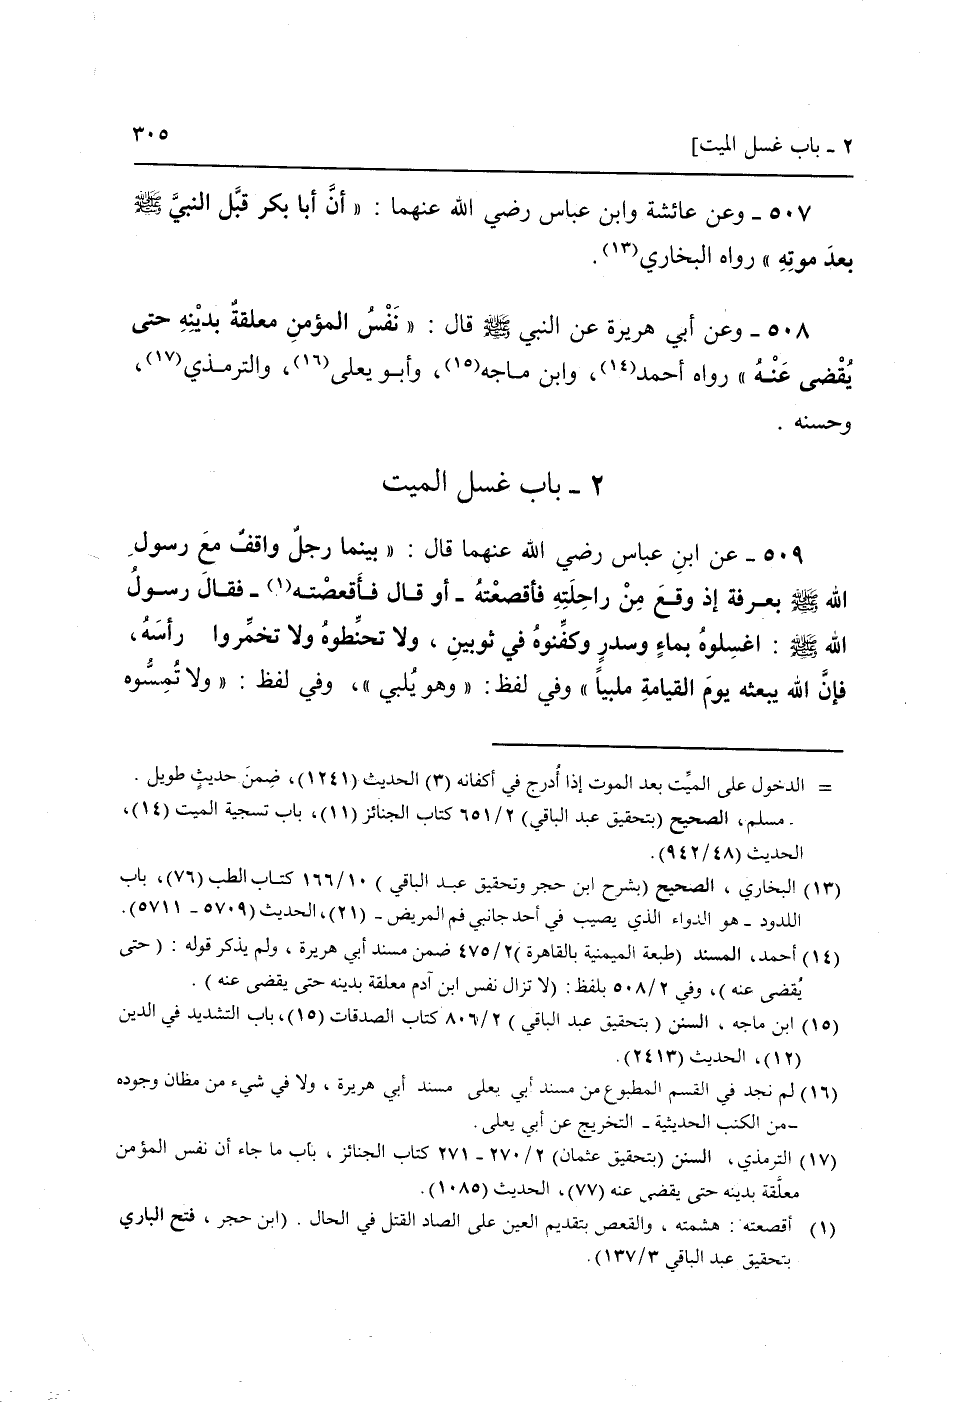 ٢ ـ باب غسل الميت] ٣٠٥
٥٠٧ ـ وعن عائشة وابن عباس رضي الله عنهما : « أنَّ أبا بكر قبَّل النبيَّ ﷺ
بعدَ موتِهِ » رواه البخاري(١٣).
٥٠٨ ـ وعن أبي هريرة عن النبي ﷺ قال : « نَفْسُ المؤمنِ معلقةٌ بديْنِهِ حتى
يُقْضى عَنْهُ » رواه أحمد(١٤)، وابن ماجه(١٥)، وأبو يعلى(١٦)، والترمذي(١٧)،
وحسنه .
٢ ـ باب غسل الميت
٥٠٩ ـ عن ابنِ عباس رضي الله عنهما قال : « بينما رجلٌ واقفٌ معَ رسولِ
الله ﷺ بعرفة إذ وقعَ مِنْ راحلَتِهِ فأقصعْتهُ ـ أو قال فأَقعصْته(١) ـ فقالَ رسولُ
الله ﷺ : اغسِلوهُ بماءٍ وسدرٍ وكفِّنوهُ في ثوبينِ ، ولا تحنِّطوهُ ولا تخمِّروا رأسَهُ،
فإنَّ الله يبعثه يومَ القيامةِ ملبياً » وفي لفظ: « وهو يُلبي »، وفي لفظ : « ولا تُمِسُّوه
= الدخول على الميِّت بعد الموت إذا أُدرج في أكفانه (٣) الحديث (١٢٤١)، ضِمنَ حديثٍ طويل .
ـ مسلم، الصحيح (بتحقيق عبد الباقي) ٢/ ٦٥١ كتاب الجنائز (١١)، باب تسجية الميت (١٤)،
الحديث (٩٤٢/٤٨).
(١٣) البخاري ، الصحيح (بشرح ابن حجر وتحقيق عبد الباقي ) ١٠/ ١٦٦ كتاب الطب (٧٦)، باب
اللدود ـ هو الدواء الذي يصيب في أحد جانبي فم المريض ـ (٢١)، الحديث (٥٧٠٩ ـ ٥٧١١).
(١٤) أحمد، المسند (طبعة الميمنية بالقاهرة )٢/ ٤٧٥ ضمن مسند أبي هريرة ، ولم يذكر قوله : ( حتى
يُقضى عنه )، وفي ٢/ ٥٠٨ بلفظ: (لا تزال نفس ابن آدم معلقة بدينه حتى يقضى عنه ) .
(١٥) ابن ماجه ، السنن ( بتحقيق عبد الباقي ) ٢/ ٨٠٦ كتاب الصدقات (١٥)، باب التشديد في الدين
(١٢)، الحديث (٢٤١٣).
(١٦) لم نجد في القسم المطبوع من مسند أبي يعلى مسند أبي هريرة ، ولا في شيء من مظان وجوده
ـ من الكتب الحديثية ـ التخريج عن أبي يعلى.
(١٧) الترمذي، السنن (بتحقيق عثمان) ٢/ ٢٧٠ ـ ٢٧١ كتاب الجنائز ، باب ما جاء أن نفس المؤمن
معلَّقة بدينه حتى يقضى عنه (٧٧)، الحديث (١٠٨٥).
(١) أقصعته : هشمته ، والقعص بتقديم العين على الصاد القتل في الحال . (ابن حجر ، فتح الباري
بتحقيق عبد الباقي ٣/ ١٣٧).